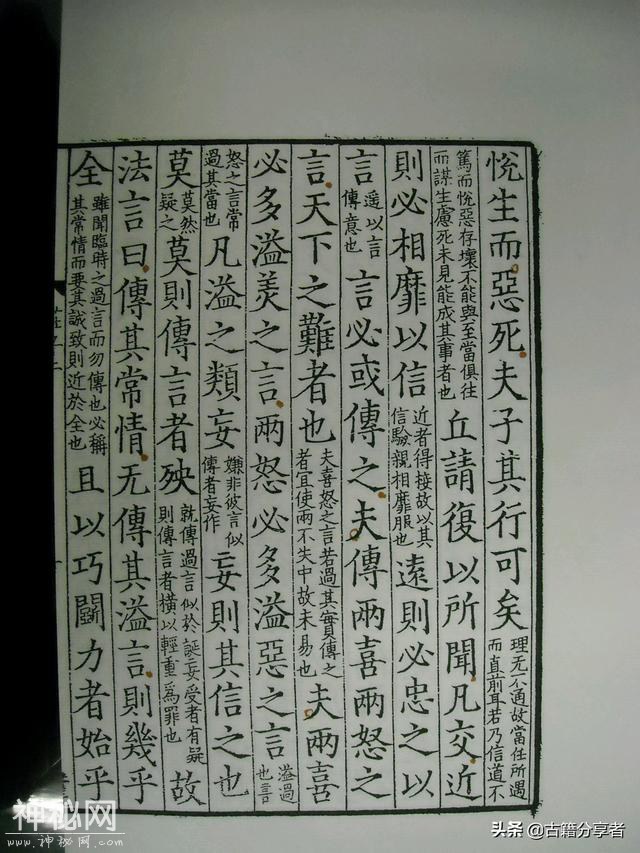 悅生而惡死夫子其行可矣理无不通故當任所遇而直前耳若乃信道不
篤而悅惡存壞不能與至當俱往而謀生慮死未見能成其事者也丘請復以所聞凡交近
則必相靡以信近者得接故以其信驗親相靡服也遠則必忠之以
言遙以言傳意也言必或傳之夫傳兩喜兩怒之
言天下之難者也夫喜怒之言若過其實傳之者宜使兩不失中故未易也夫兩喜
必多溢美之言兩怒必多溢惡之言溢過也喜
怒之言常過其當也凡溢之類妄嫌非彼言似傳者妄作妄則其信之也
莫莫然疑之莫則傳言者殃就傳過言似於誕妄受者有疑則傳言者橫以輕重爲罪也故
法言曰傳其常情无傳其溢言則幾乎
全雖聞臨時之過言而勿傳也必稱其常情而要其誠致則近於全也且以巧鬭力者始乎
神秘网
www.神秘网.com
头条 @古籍分享者